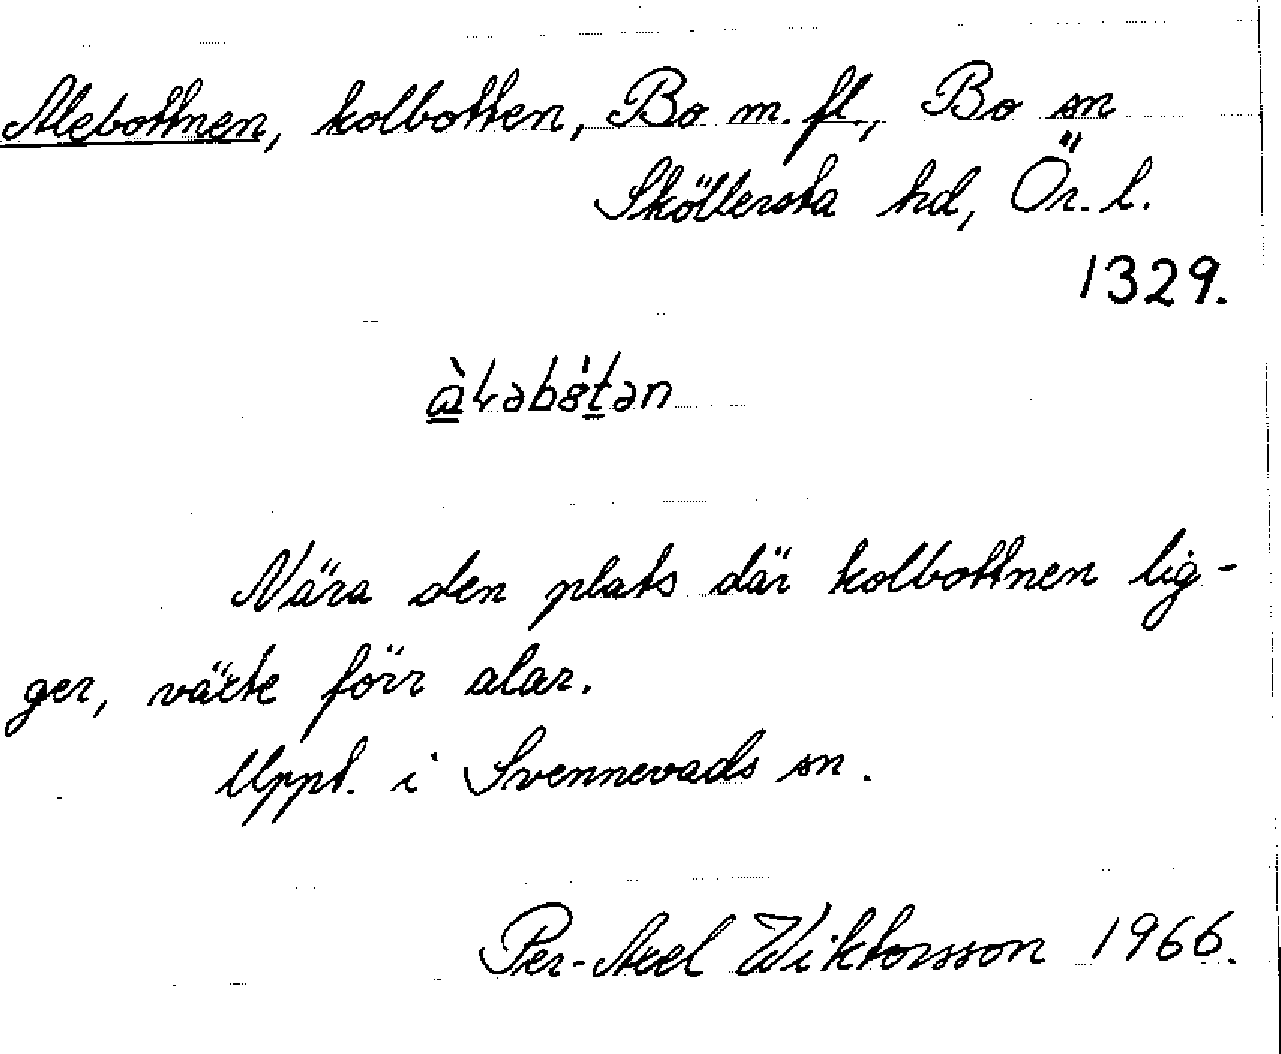 Alebottnen, kolbotten, Bo m. fl., Bo sn
Sköllersta hd, Ör. l.
1329.
Nära den plats där kolbottnen lig-
ger, växte förr alar.
Uppt. i Svennevads sn.
Per-Axel Wiktorsson 1966.